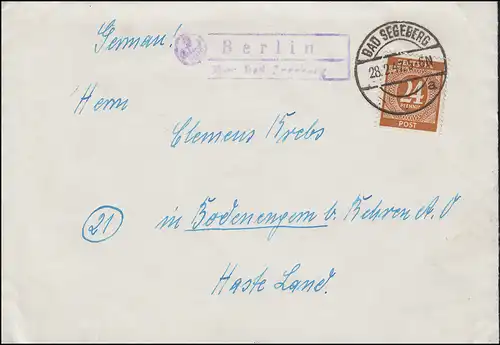 German!
Berlin
über Bad Segeberg
BAD SEGEBERG
28.2.47
a
24
PFENNIG
POST
Herrn
Clemens Krebs
(21)
in Bodenengern b. Rehren A. O
Haste Land.